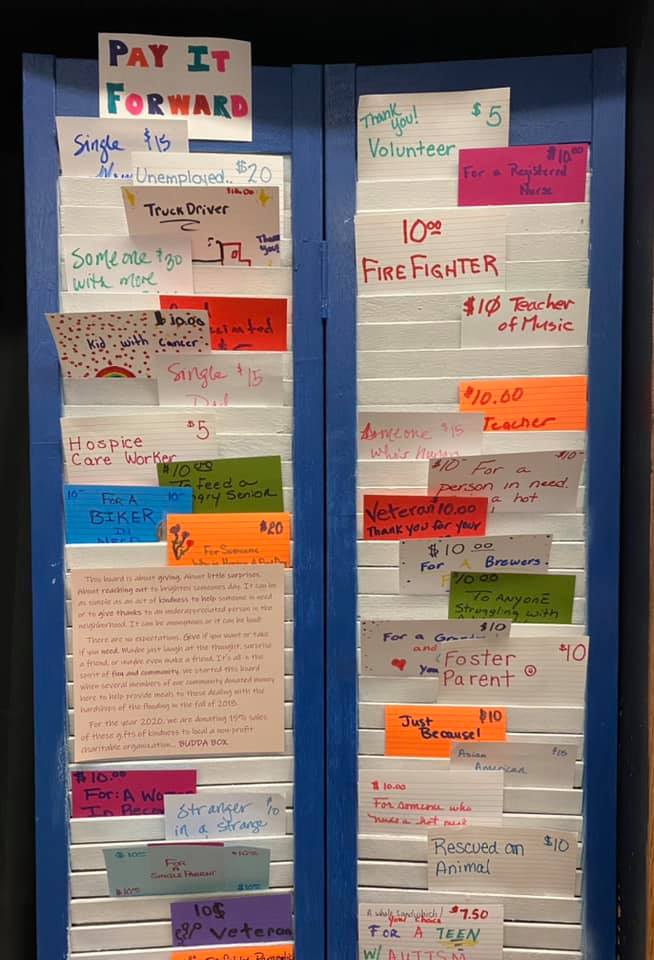 PAY IT
FORWARD
Single $15
Mom
Unemployed.. $20
$10.00
Truck Driver
Thank
You!
Someone $30
with more
$10.00
Kid with Cancer
Single $15
Dad
$5
Hospice
Care Worker
$10.00
To Feed a
Senior
10- 10-
FOR A
BIKER
IN
NEED
$20
For Someone
This board is about giving. About little surprises.
About reaching out to brighten someones day. It can be
as simple as an act of kindness to help someone in need
or to give thanks to an underappreciated person in the
neighborhood. It can be anonymous or it can be loud!
There are no expectations. Give if you want or take
if you need. Maybe just laugh at the thought, surprise
a friend, or maybe even make a friend. It's all in the
spirit of fun and community. We started this board
when several members of our community donated money
here to help provide meals to those dealing with the
hardships of the flooding in the fall of 2018.
For the year 2020, we are donating 15% sales
of these gifts of kindness to local a non-profit
charitable organization... BUDDA BOX
$10.00
For: A
In
Stranger 10
in a strange
FOR
A
SINGLE PARENT
10$
Veteran
Thank
you! $5
Volunteer
$10.00
For a Registered
Nurse
10.00
FIREFIGHTER
$10 Teacher
of Music
$10.00
Teacher
Someone $15
who's
$10- For a $10-
person in need.
a hot
Veteran 10.00
Thank you for your
$10.00
For A Brewers
10.00
To Anyone
Struggling with
$10
For a
and
You
$10
Foster
Parent
Just $10
Because!
Asian $15
American
$10.00
For someone who
needs a hot meal
Rescued an $10
Animal
A whole sandwich! $7.50
your choice
FOR A TEEN
W/ AUTISM